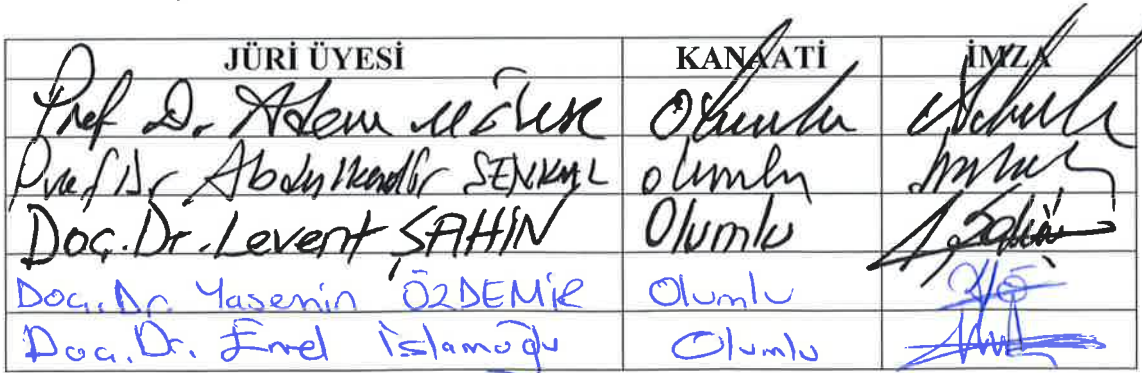 JÜRİ ÜYESİ KANAATİ İMZA
Prof. Dr. Adem UĞUR Olumlu
Prof. Dr. Abdulkadir ŞENKAL olumlu
Doç. Dr. Levent ŞAHİN Olumlu
Doç. Dr. Yasemin ÖZDEMİR Olumlu
Doç. Dr. Emel İslamoğlu Olumlu